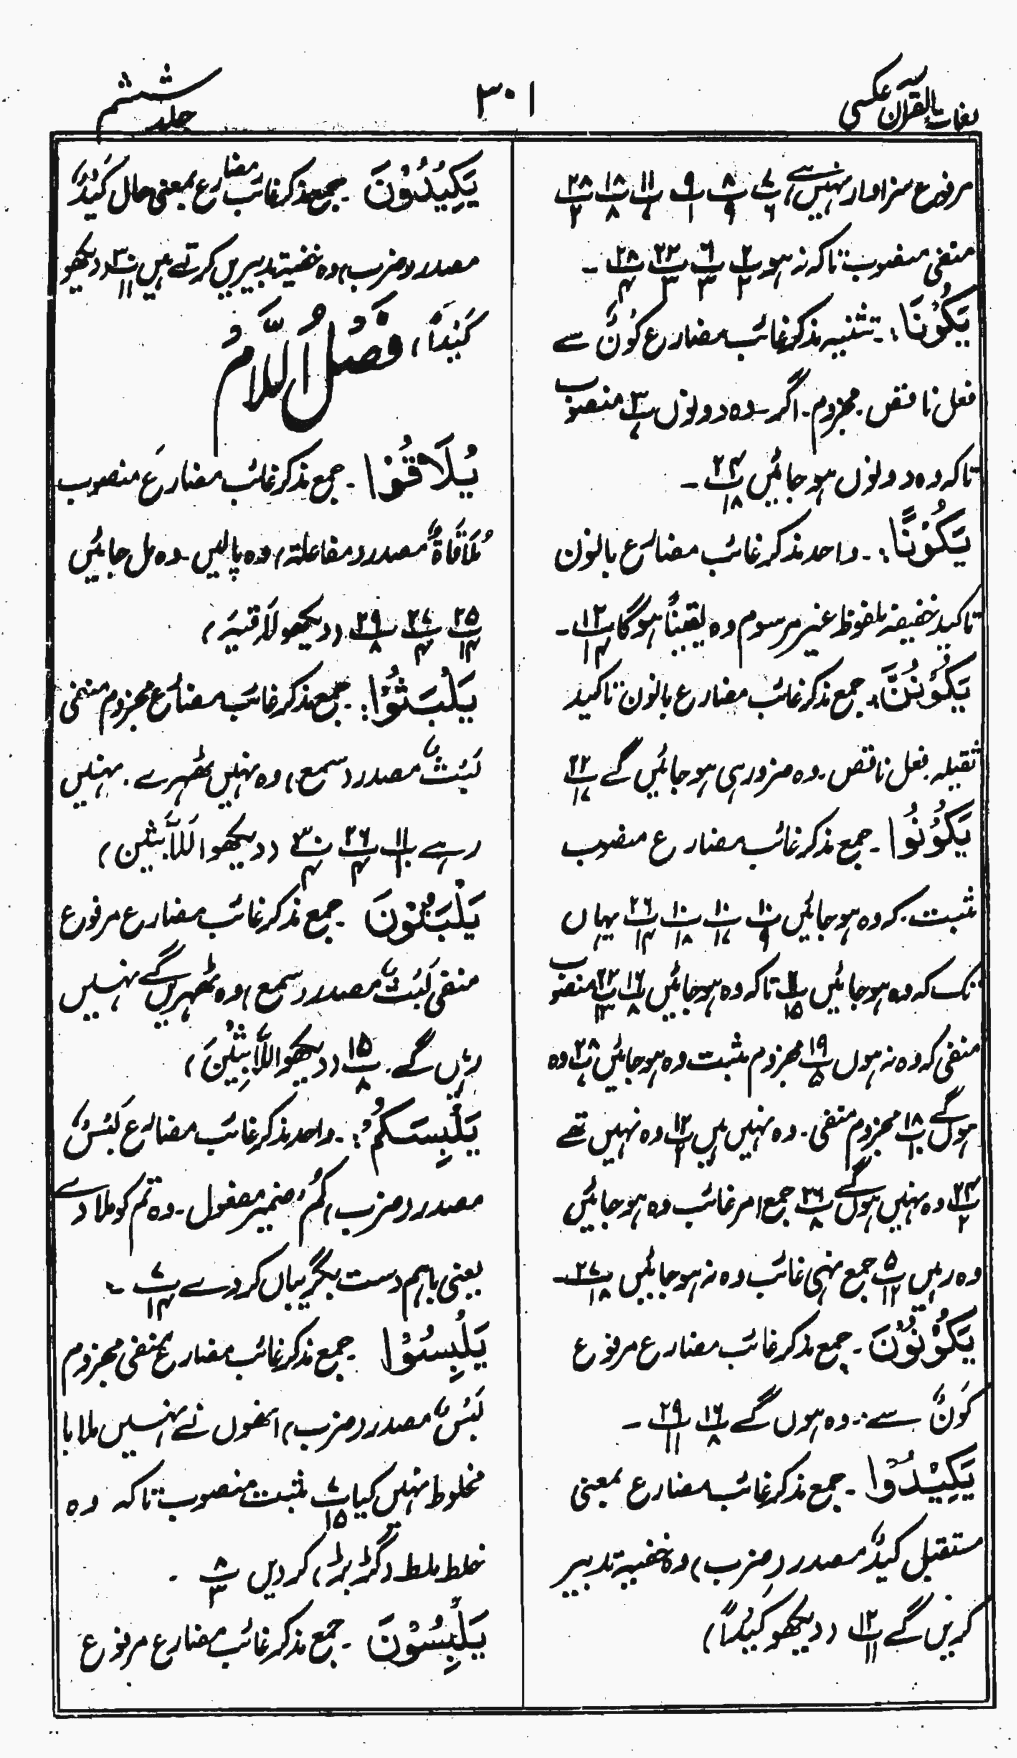 لغات القرآن عکسی
۳۰۱
جلد ششم
مرفوع سزاوار نہیں ہے، پ۷/۶ پ۸/۹ پ۹/۱ پ۱۱/۶ پ۱۸/۸ پ۲۸/۲
منفی منصوب تاکہ نہ ہو پ۲/۲ پ۶/۳ پ۲۲/۳ پ۲۸/۴ ۔
یَکُوْنَا:۔ تثنیہ مذکر غائب مضارع کَوْنٌ سے
فعل ناقص۔ مجزوم۔ اگر وہ دونوں پ۳/۷ منصوب
تاکہ وہ دونوں ہو جائیں پ۲۴/۱۸ ۔
یَکُوْنًا:۔ واحد مذکر غائب مضارع بانون
تاکید خفیفہ ملفوظ غیر مرسوم وہ یقیناً ہوگا پ۱۲/۱۴ ۔
یَکُوْنُنَّ:۔ جمع مذکر غائب مضارع بانون تاکید
ثقیلہ۔ فعل ناقص۔ وہ ضرور ہی ہو جائیں گے پ۲۲/۱۷
یَکُوْنُوا ۔ جمع مذکر غائب مضارع منصوب
مثبت۔ کہ وہ ہو جائیں پ۱۰/۹ پ۱۰/۱۷ پ۱۰/۱۸ پ۲۶/۱۴ یہاں
تک کہ وہ ہو جائیں پ۱۱/۱۵ تاکہ وہ ہو جائیں پ۱۶/۸ پ۲۲/۱۳ منصوب
منفی کہ وہ نہ ہوں پ۱۹/۵ مجزوم مثبت وہ ہو جائیں پ۲۸/۷ وہ
ہوں گے پ۱۸/۱۰ مجزوم منفی۔ وہ نہیں ہیں پ۱۲/۲ وہ نہیں تھے
پ۲۴/۲ وہ نہیں ہوں گے پ۲۶/۸ جمع امر غائب وہ ہو جائیں
وہ رہیں پ۵/۱۲ جمع نہی غائب وہ نہ ہو جائیں پ۲۷/۱۸ ۔
یَکُوْنُوْنَ ۔ جمع مذکر غائب مضارع مرفوع
کَوْنٌ سے:۔ وہ ہوں گے پ۱۶/۸ پ۲۹/۱۱ ۔
یَکِیْدُوْا ۔ جمع مذکر غائب مضارع بمعنی
مستقبل کَیْدٌ مصدر (ضرب) وہ خفیہ تدبیر
کریں گے پ۱۲/۱۱ (دیکھو کَیْدًا)
یَکِیْدُوْنَ ۔ جمع مذکر غائب مضارع بمعنی حال کَیْدٌ
مصدر (ضرب) وہ خفیہ تدبیریں کرتے ہیں پ۳۰/۱۱ (دیکھو
کَیْدًا)
فَصْلُ اللَّامُ
یُلَاقُوْا ۔ جمع مذکر غائب مضارع منصوب
مُلَاقَاۃٌ مصدر (مفاعلۃ) وہ پالیں۔ وہ مل جائیں
پ۲۵/۱۳ پ۲۷/۴ پ۲۹/۸ (دیکھو لَاقِیَہ)
یَلْبَثُوْا:۔ جمع مذکر غائب مضارع مجزوم منفی
لَبْثٌ مصدر (سمع) وہ نہیں ٹھہرے۔ نہیں
رہے پ۱۱/۱۰ پ۲۶/۴ پ۳۰/۴ (دیکھو اللّٰابِثِین)
یَلْبَثُوْنَ ۔ جمع مذکر غائب مضارع مرفوع
منفی لَبْثٌ مصدر (سمع) وہ ٹھہریں گے نہیں
رہیں گے۔ پ۱۵/۸ (دیکھو اللّٰابِثِیْنَ)
یَلْبِسَکُمْ:۔ واحد مذکر غائب مضارع لَبْسٌ
مصدر (ضرب) کُمْ ضمیر مفعول۔ وہ تم کو ملا دے
یعنی باہم دست بگریباں کردے پ۷/۱۴ ۔
یَلْبِسُوْا جمع مذکر غائب مضارع منفی مجزوم
لَبْسٌ مصدر (ضرب) انھوں نے نہیں ملایا
مخلوط نہیں کیا پ۷/۱۵ مثبت منصوب تاکہ وہ
خلط ملط (گڑبڑ) کردیں پ۸/۳ ۔
یَلْبِسُوْنَ ۔ جمع مذکر غائب مضارع مرفوع